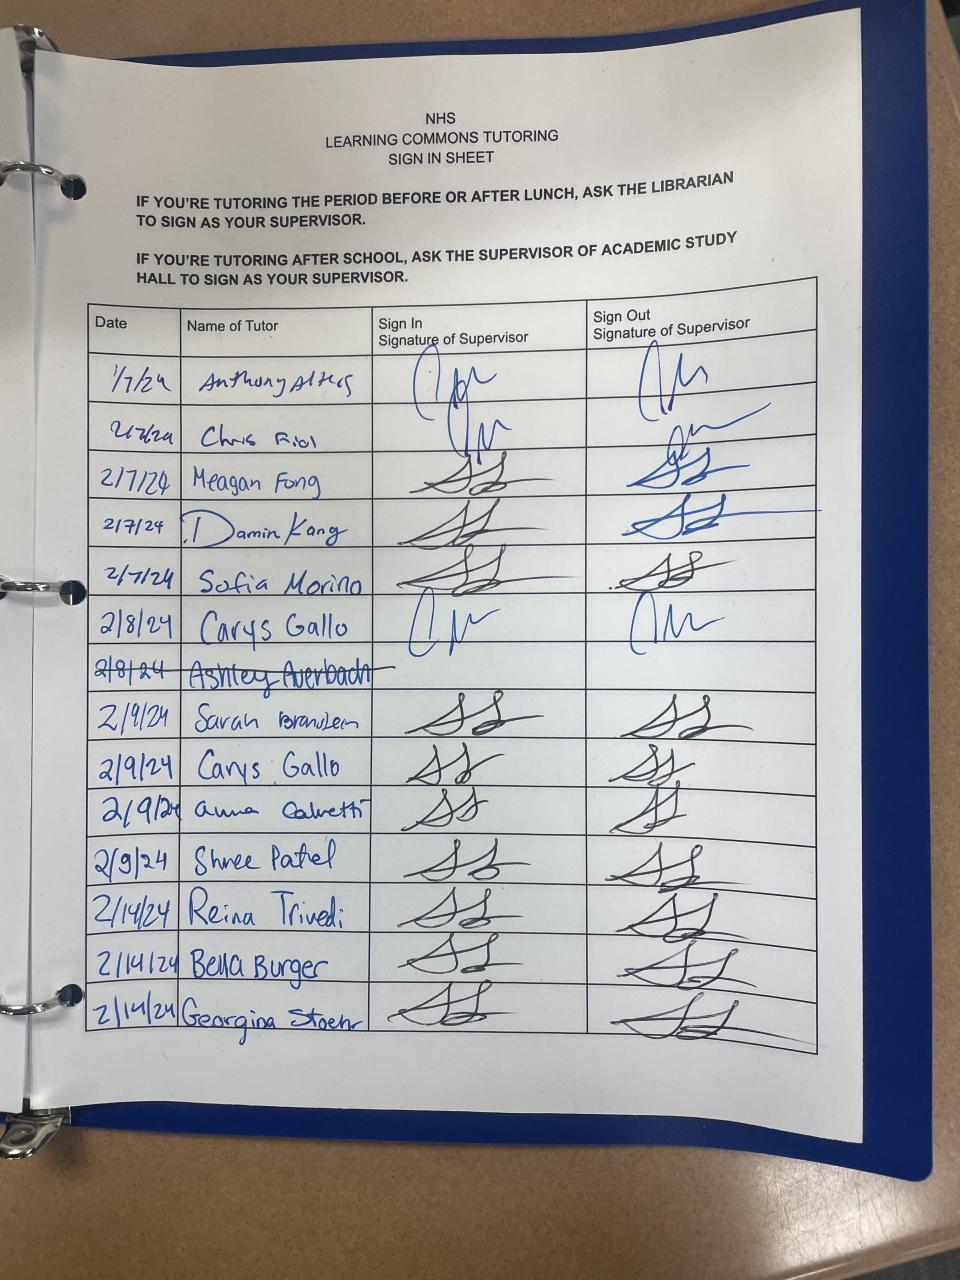 NHS
LEARNING COMMONS TUTORING
SIGN IN SHEET
IF YOU'RE TUTORING THE PERIOD BEFORE OR AFTER LUNCH, ASK THE LIBRARIAN
TO SIGN AS YOUR SUPERVISOR.
IF YOU'RE TUTORING AFTER SCHOOL, ASK THE SUPERVISOR OF ACADEMIC STUDY
HALL TO SIGN AS YOUR SUPERVISOR.
Date Name of Tutor Sign In Signature of Supervisor Sign Out Signature of Supervisor
1/7/24 Anthony
2/7/24 Chris
2/7/24 Meagan Fong
2/7/24 Damin Kang
2/7/24 Sofia Morino
2/8/24 Carys Gallo
2/8/24 Ashley Averbach
2/9/24 Sarah
2/9/24 Carys Gallo
2/9/24 anna Calvetti
2/9/24 Shree Patel
2/14/24 Reina Trivedi
2/14/24 Bella Burger
2/14/24 Georgina Stoehr